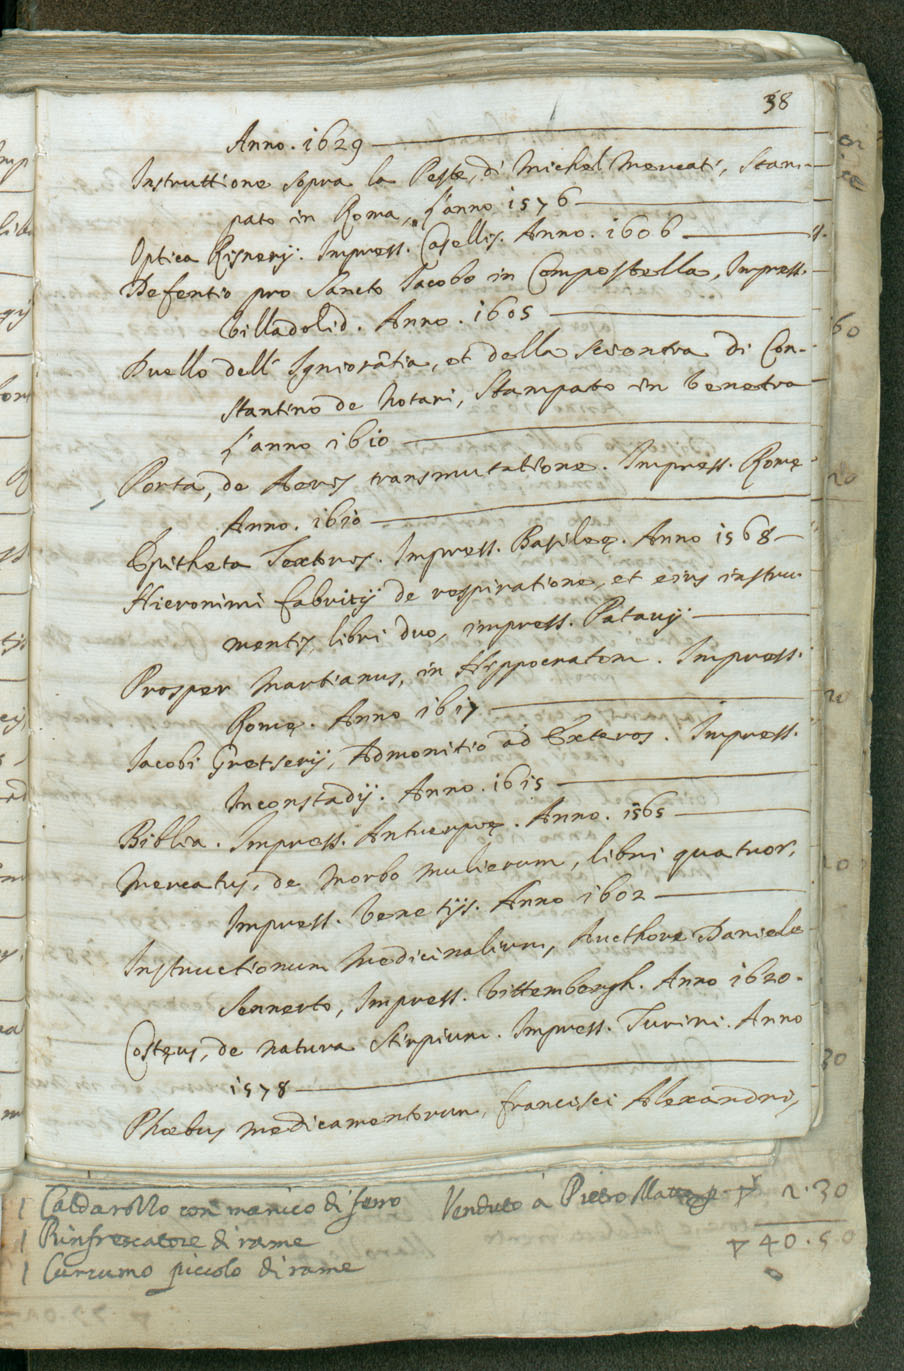 38
Anno. 1629
Instruttione sopra la Peste, di Michel Mercati, Stam-
pato in Roma, l'anno 1576
Optica Risnerij. Impress. Casellis. Anno. 1606
Defentio pro Sancto Iacobo in Compostella, Impress.
Villadolid. Anno. 1605
Duello dell' Igniorãtia, et della scientia di Con-
stantino de Notari, Stampato in Venetia
l'anno 1610
Porta, de Aeris transmutatione. Impress. Romę
Anno. 1610
Epitheta Textoris. Impress. Basileę. Anno 1568
Hieronimi fabritij de respiratione, et eius instru-
mentis, libri duo, impress. Patavij
Prosper Martianus, in Hippocratem. Impress.
Romę. Anno 1617
Iacobi Gretserij, Admonitio ad Exteros. Impress.
Inconstadij. Anno. 1615
Biblia. Impress. Antuerpię. Anno. 1565
Mercatus, de Morbo mulierum, libri quatuor,
Impress. Venetijs. Anno 1602
Instructionum Medicinalium, Aucthore Daniele
Sennerto, Impress. Vittembergh. Anno 1620.
Costęus, de natura Stirpium. Impress. Turini. Anno
1578
Phoebus medicamentorum, francisci Alexandri,
1 Caldarollo con manico di ferro Venduto à Pietro 2.30
1 Rinfrescatore di rame 40.50
1 Curzumo piccolo di rame